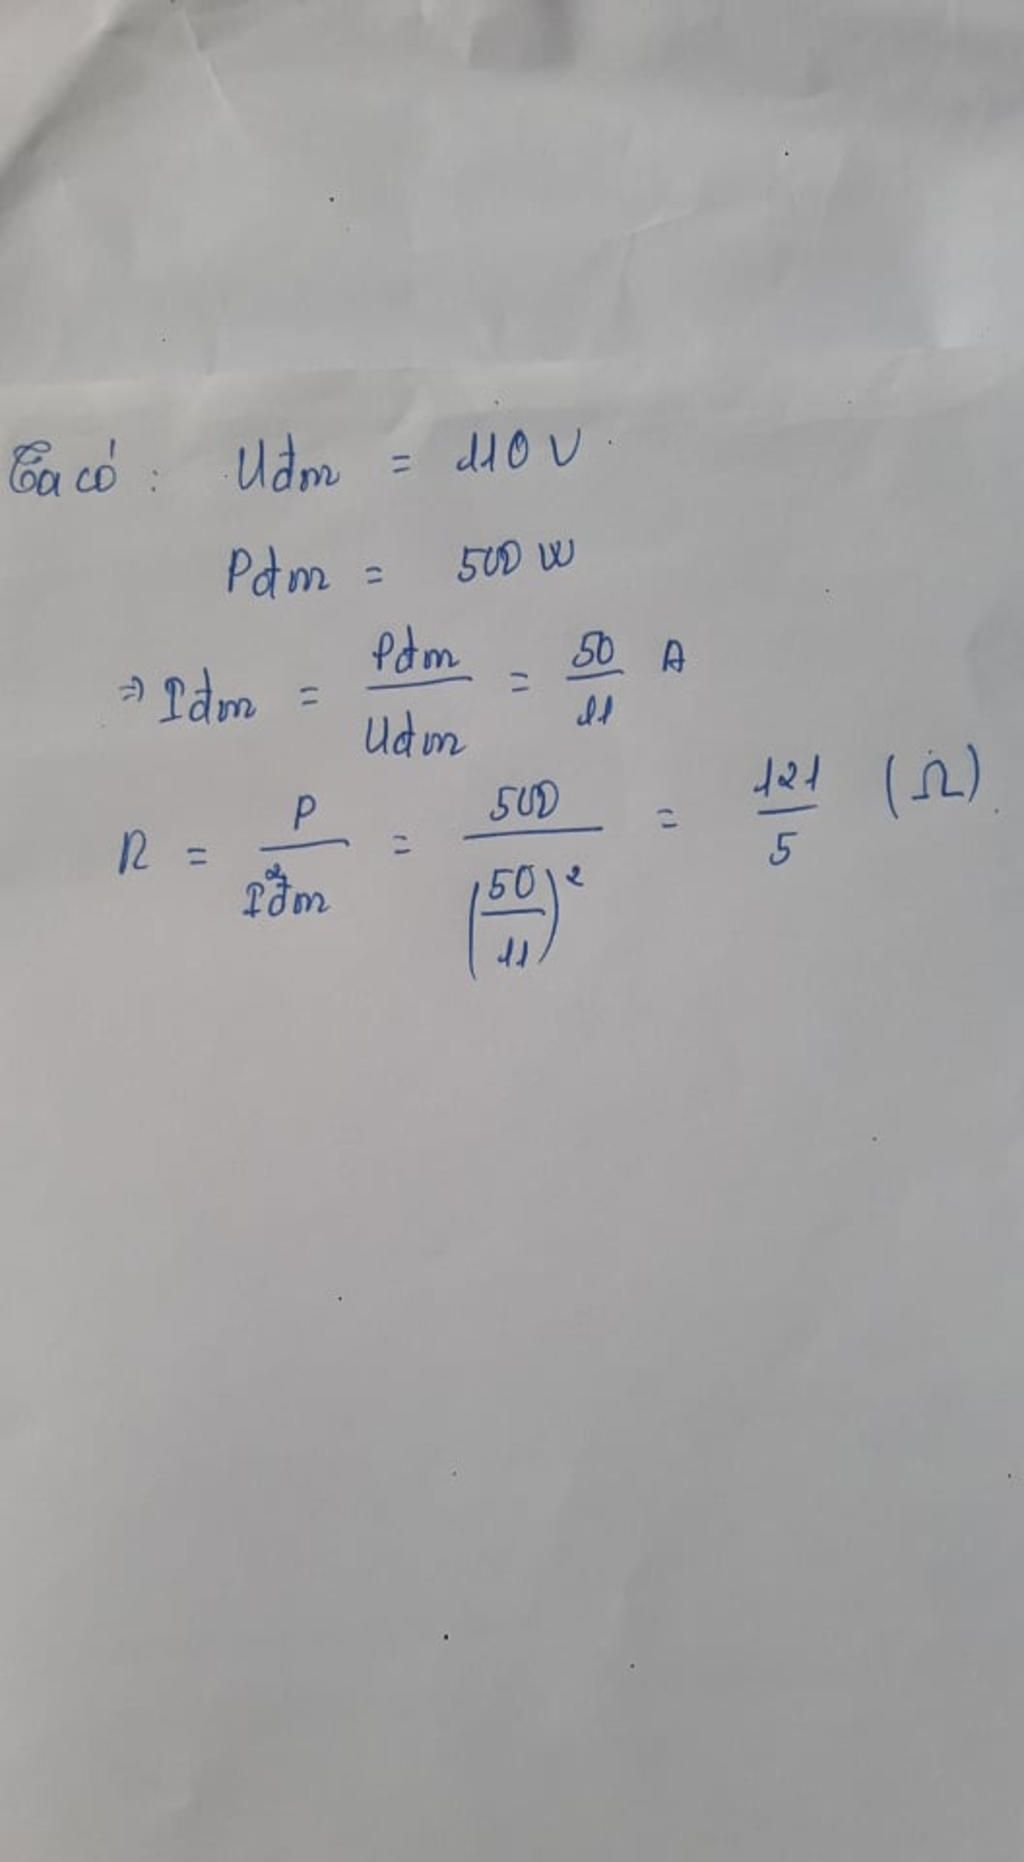 Ta có : Uđm = 110 V
Pđm = 500 W
=> Iđm = Pđm / Uđm = 50 / 11 A
R = P / I²đm = 500 / (50 / 11)² = 121 / 5 (Ω)